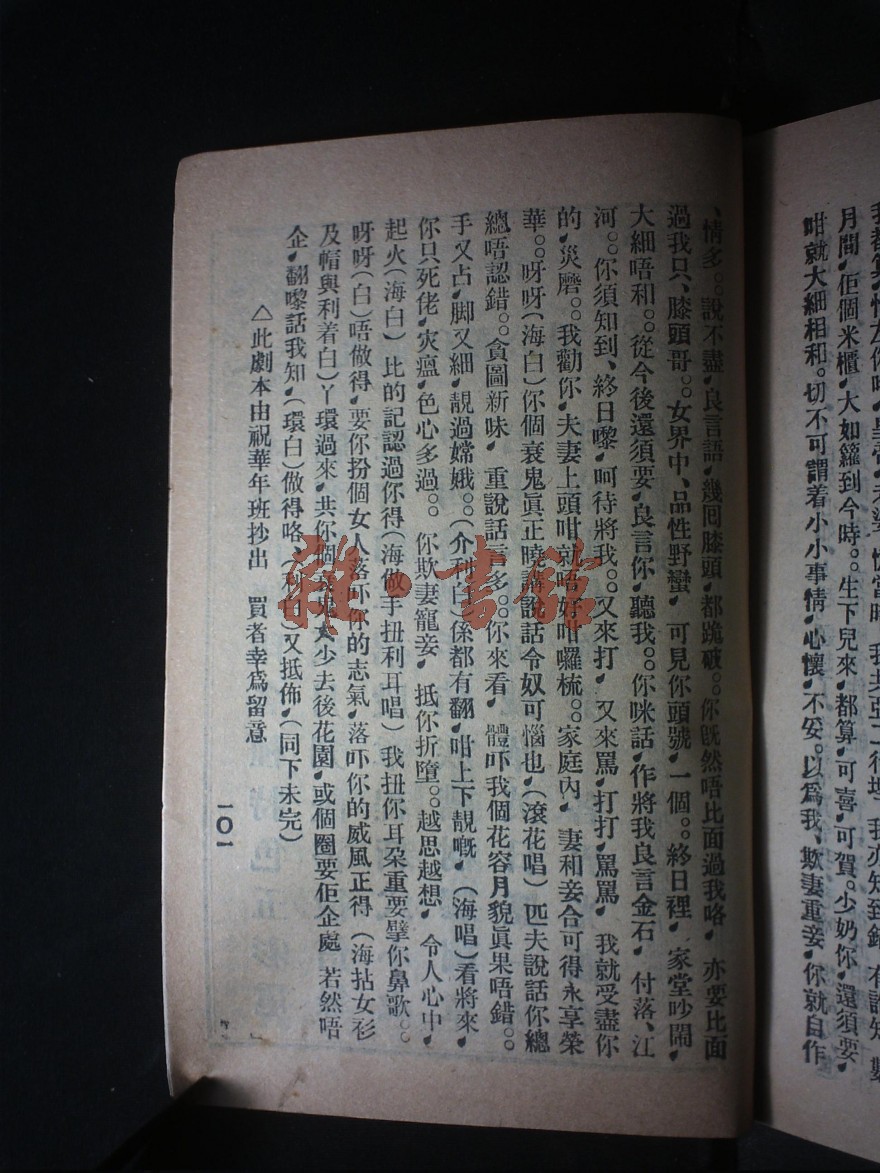 月間，佢個米櫃，大如籮到今時。。生下兒來，都算，可喜，可賀。少奶你，還須要，
咁就大細相和。切不可謂着小小事情，心懷，不妥。以爲我、欺妻重妾，你就自作
、情多。。說不盡，良言語，幾囘膝頭，都跪破。。你既然唔比面過我咯，亦要比面
過我只、膝頭哥。。女界中、品性野蠻，可見你頭號，一個。。終日裡，家堂吵鬧，
大細唔和。。從今後還須要，良言你，聽我。。你咪話，作將我良言金石，付落、江
河。。你須知到、終日嚟，呵待將我。。又來打，又來罵，打打，罵罵，我就受盡你
的，災磨。。我勸你，夫妻上頭咁就唔好咁囉梳。。家庭內，妻和妾合可得永享榮
華。。呀呀（海白）你個衰鬼眞正曉講說話令奴可惱也，（滾花唱）匹夫說話你總
總唔認錯。。貪圖新味，重說話言多。。你來看，體吓我個花容月貌眞果唔錯。。
手又占，脚又細，靚過嫦娥。。（介利白）係都有翻，咁上下靚嘅，（海唱）看將來，
你只死佬，灾瘟，色心多過。。你欺妻寵妾，抵你折墮。。越思越想，令人心中，
起火（海白）比的記認過你得（海做手扭利耳唱）我扭你耳朶重要擘你鼻歌。。
呀呀（白）唔做得，要你扮個女人落吓你的志氣，落吓你的威風正得（海拈女衫
及帽與利着白）丫環過來，共你個衰鬼大少去後花園，或個圈要佢企處 若然唔
企，翻嚟話我知，（環白）做得咯、（利白）又抵佈，（同下未完）
△此劇本由祝華年班抄出 買者幸爲留意
一〇一
雜·書館